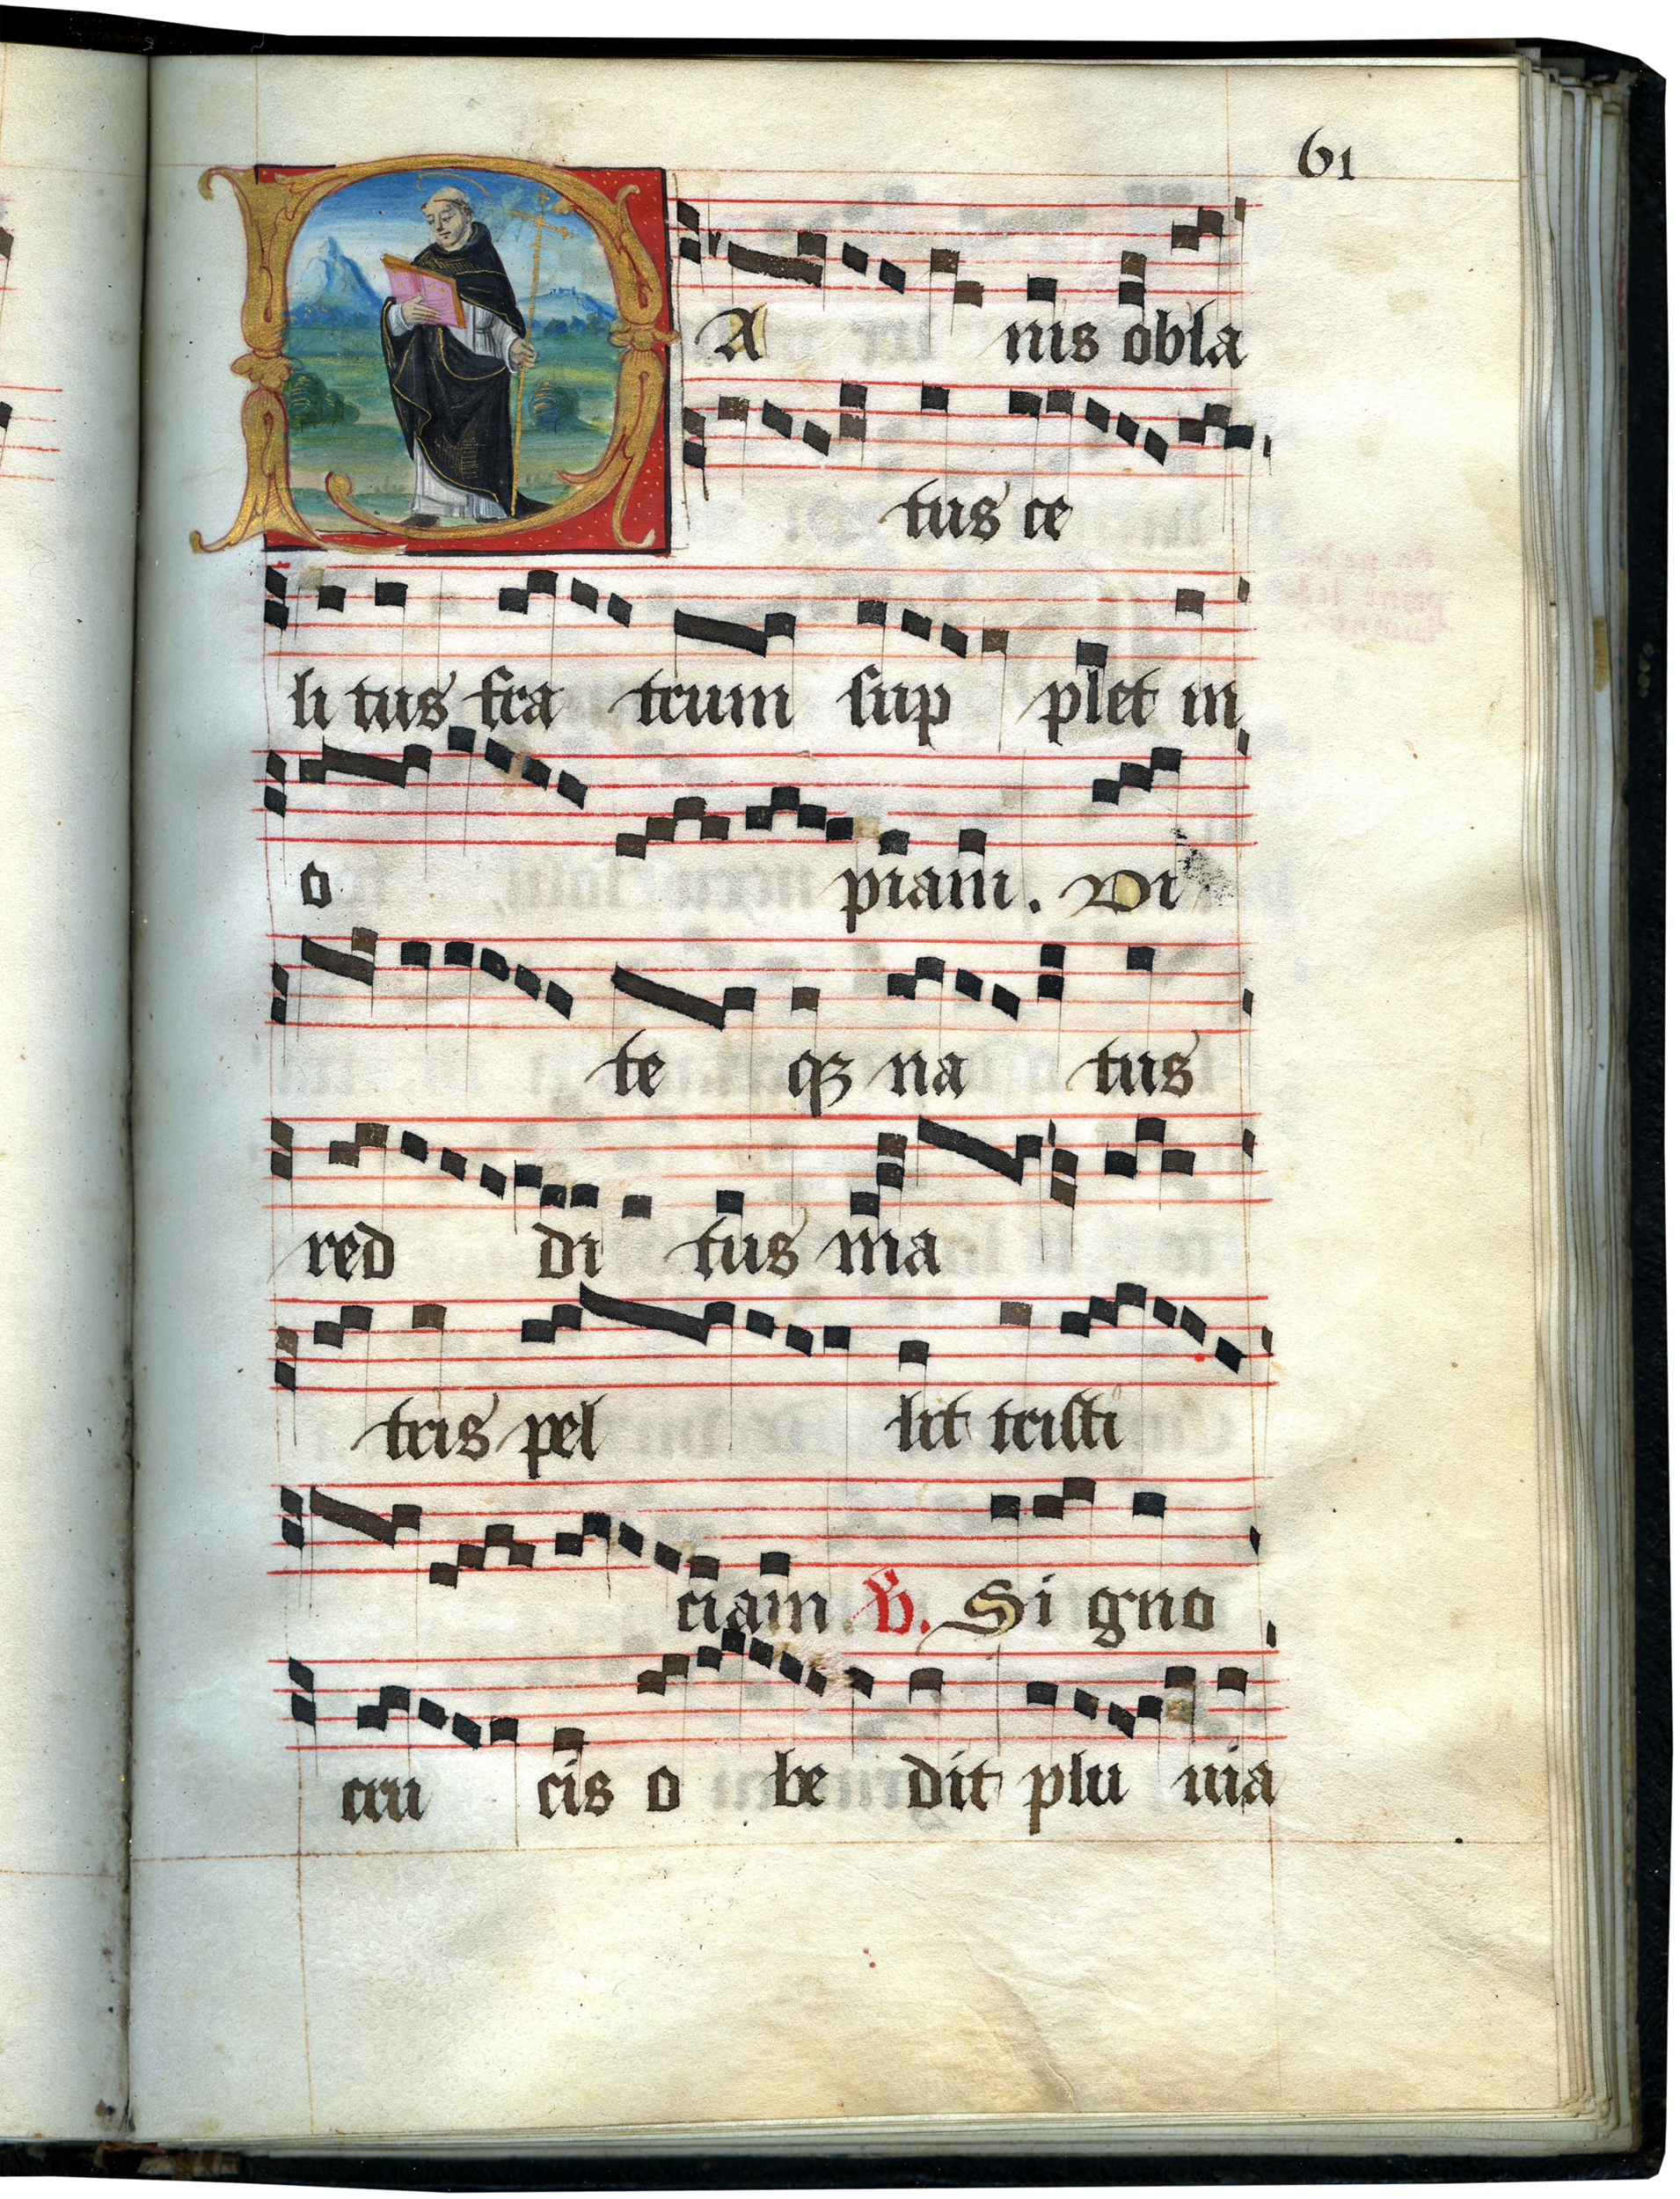 61
PA nis obla
tus ce
li tus fra trum sup plet in
o piam. Vi
te qꝫ na tus
red di tus ma
tris pel lit tristi
ciam ℣. Si gno
cru cis o be dit plu uia